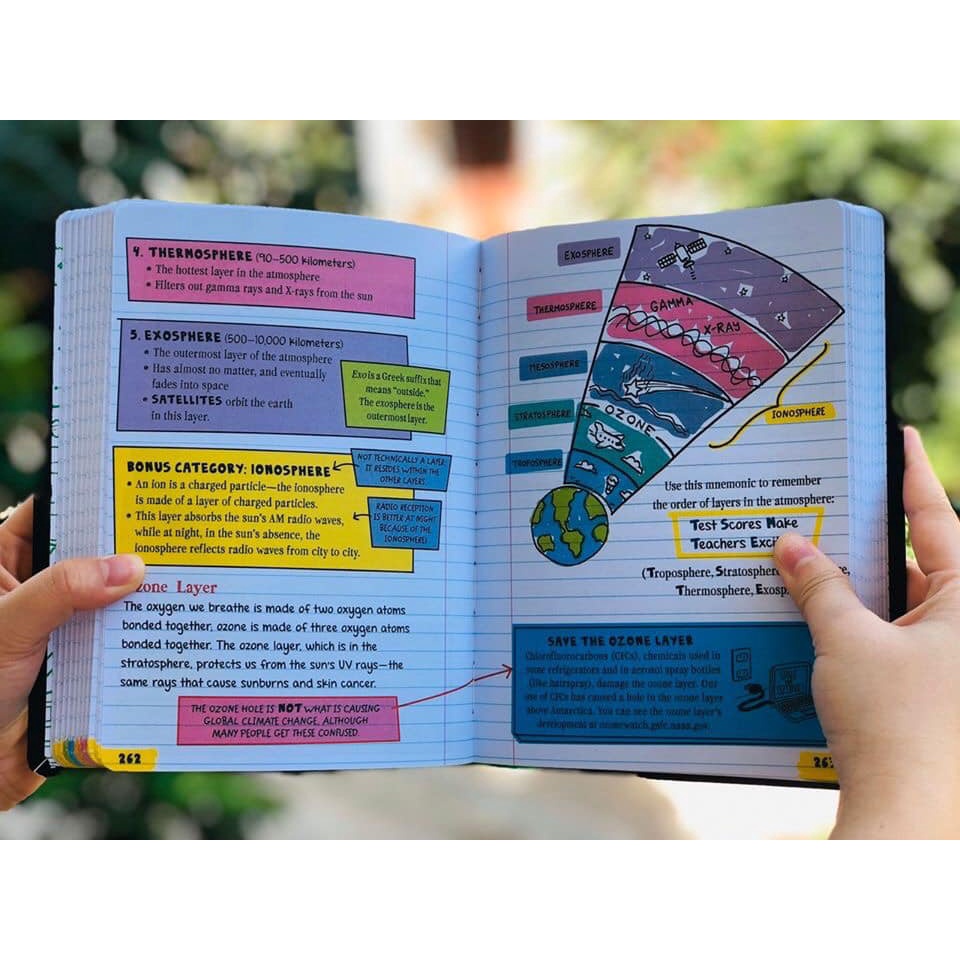 4. THERMOSPHERE (90–500 kilometers)
• The hottest layer in the atmosphere
• Filters out gamma rays and X-rays from the sun
5. EXOSPHERE (500–10,000 kilometers)
• The outermost layer of the atmosphere
• Has almost no matter, and eventually
fades into space
• SATELLITES orbit the earth
in this layer.
Exo is a Greek suffix that
means "outside."
The exosphere is the
outermost layer.
BONUS CATEGORY: IONOSPHERE
• An ion is a charged particle—the ionosphere
is made of a layer of charged particles.
• This layer absorbs the sun's AM radio waves,
while at night, in the sun's absence, the
ionosphere reflects radio waves from city to city.
NOT TECHNICALLY A LAYER
IT RESIDES WITHIN THE
OTHER LAYERS
RADIO RECEPTION
IS BETTER AT NIGHT
BECAUSE OF THE
IONOSPHERE!
zone Layer
The oxygen we breathe is made of two oxygen atoms
bonded together, ozone is made of three oxygen atoms
bonded together. The ozone layer, which is in the
stratosphere, protects us from the sun's UV rays—the
same rays that cause sunburns and skin cancer.
THE OZONE HOLE IS NOT WHAT IS CAUSING
GLOBAL CLIMATE CHANGE, ALTHOUGH
MANY PEOPLE GET THESE CONFUSED.
262
EXOSPHERE
THERMOSPHERE
MESOSPHERE
STRATOSPHERE
TROPOSPHERE
GAMMA
X-RAY
OZONE
IONOSPHERE
Use this mnemonic to remember
the order of layers in the atmosphere:
Test Scores Make
Teachers
(Troposphere, Stratosphere
Thermosphere,
SAVE THE OZONE LAYER
Chlorofluorocarbons (CFCs), chemicals used in
some refrigerators and in aerosol spray bottles
(like hairspray), damage the ozone layer. Our
use of CFCs has caused a hole in the ozone layer
above Antarctica. You can see the ozone layer's
development at ozonewatch.gsfc.nasa.gov.